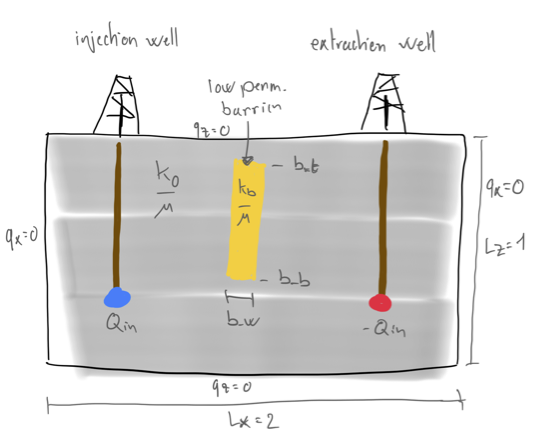 injection well
extraction well
low perm.
barrier
qz=0
k0/μ
kb/μ
b_t
b_b
b_w
qx=0
qx=0
Lz=1
Qin
-Qin
qz=0
Lx=2